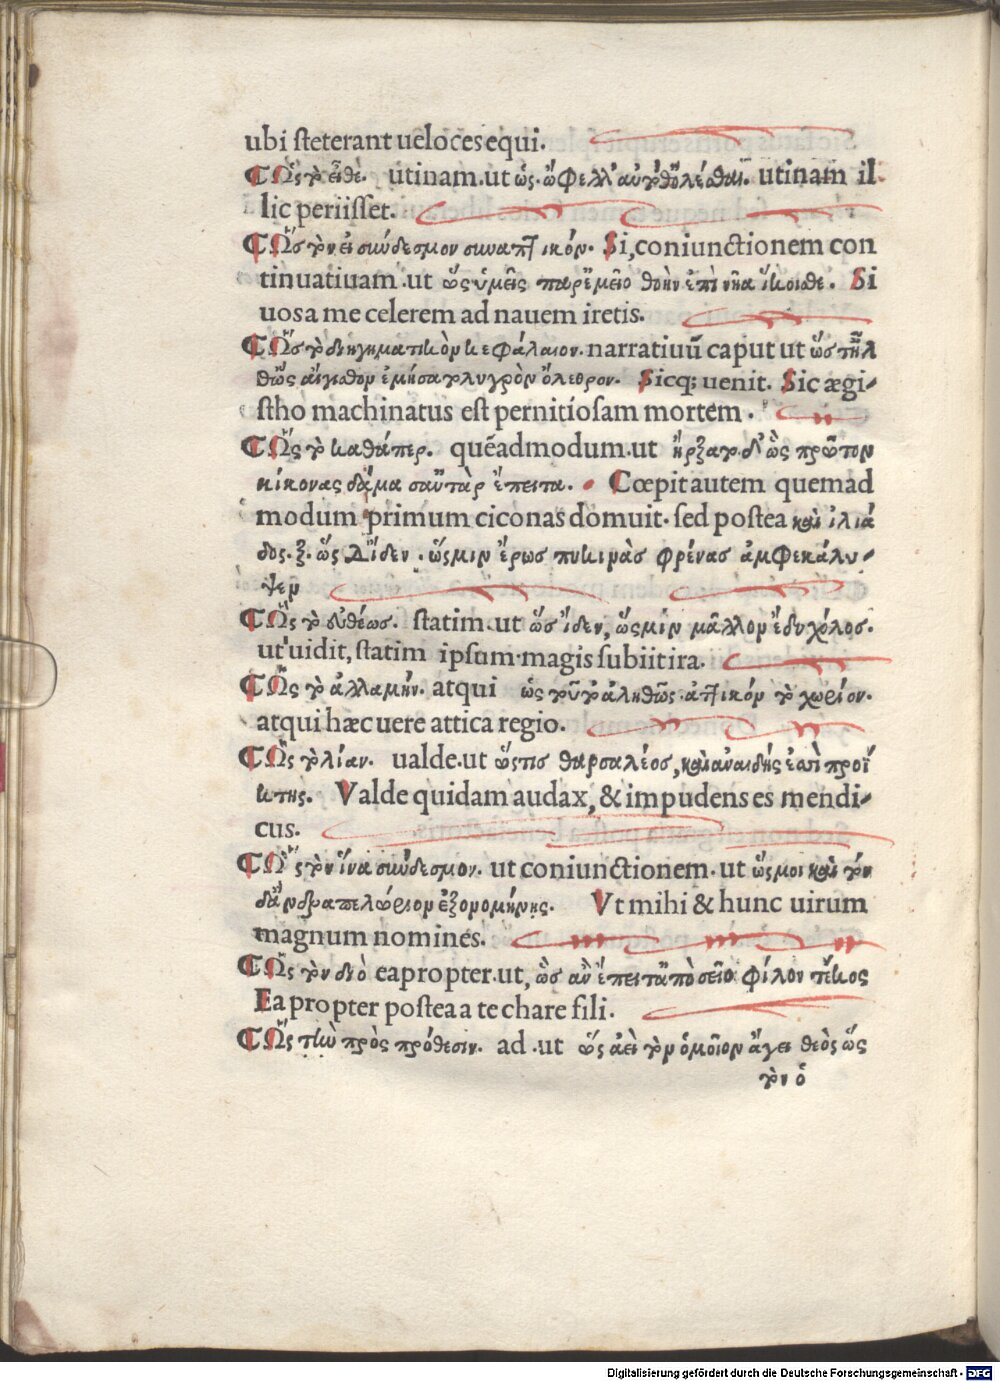 ubi ſteterant ueloces equi.
¶Ως τὸ εἴθε. utinam.ut ὡς.ὤφελλ' αὐτόθ' ὀλέσθαι. utinam il
lic periiſſet.
¶Ὣσ τὸν εἰ σύνδεσμον συναπτικόν. Si,coniunctionem con
tinuatiuam.ut ὣς ὑμεῖς παρ' ἐμεῖο θοὴν ἐπὶ νῆα κίοιθε. Si
uos a me celerem ad nauem iretis.
¶Ὣσ τὸ διηγηματικὸν κεφάλαιον.narratiuū caput ut ὥσ τ' ἦλ
θ' ὥς αἴγισθον ἐμήσατο λυγρὸν ὄλεθρον. Sicq; uenit. Sic ægi-
ſtho machinatus eſt pernitioſam mortem.
¶Ὣς τὸ καθάπερ. quēadmodum.ut ἤρξατο δ' ὡς πρῶτον
κίκονας δάμασ' αὐτὰρ ἔπειτα. Cœpit autem quemad
modum primum ciconas domuit.ſed poſtea καὶ ἰλιά
δος.ξ.ὡς δ' ἴδεν.ὥς μιν ἔρωσ πυκινὰσ φρένασ ἀμφεκάλυ-
ψεν
¶Ὣς τὸ εὐθέωσ. ſtatim.ut ὥσ ἴδεν,ὥς μιν μᾶλλον ἔδυ χόλοσ.
ut uidit,ſtatim ipſum magis ſubiit ira.
¶Ὣς τὸ ἀλλαμήν. atqui ὡς τοῦτο ἀληθῶς.ἀττικόν τὸ χωρίον.
atqui hæc uere attica regio.
¶Ὣς τὸ λίαν. ualde.ut ὥς τισ θαρσαλέοσ,καὶ ἀναιδής ἐσσὶ προΐ
κτης. Valde quidam audax,& impudens es mendi-
cus.
¶Ὣς τὸν ἵνα σύνδεσμον. ut coniunctionem.ut ὥς μοι καὶ τόν
δ' ἄνδρα πελώριον ἐξονομήνῃς. Vt mihi & hunc uirum
magnum nomines.
¶Ὣς τὸν διὸ eapropter.ut, ὣσ ἂν ἔπειτ' ἀπὸ σεῖο φίλον τέκος
Ea propter poſtea a te chare fili.
¶Ὣς τὴν πρὸς πρόθεσιν. ad.ut ὥς ἀεὶ τὸν ὁμοῖον ἄγει θεὸς ὥς
τὸν ὁ
Digitalisierung gefördert durch die Deutsche Forschungsgemeinschaft - DFG